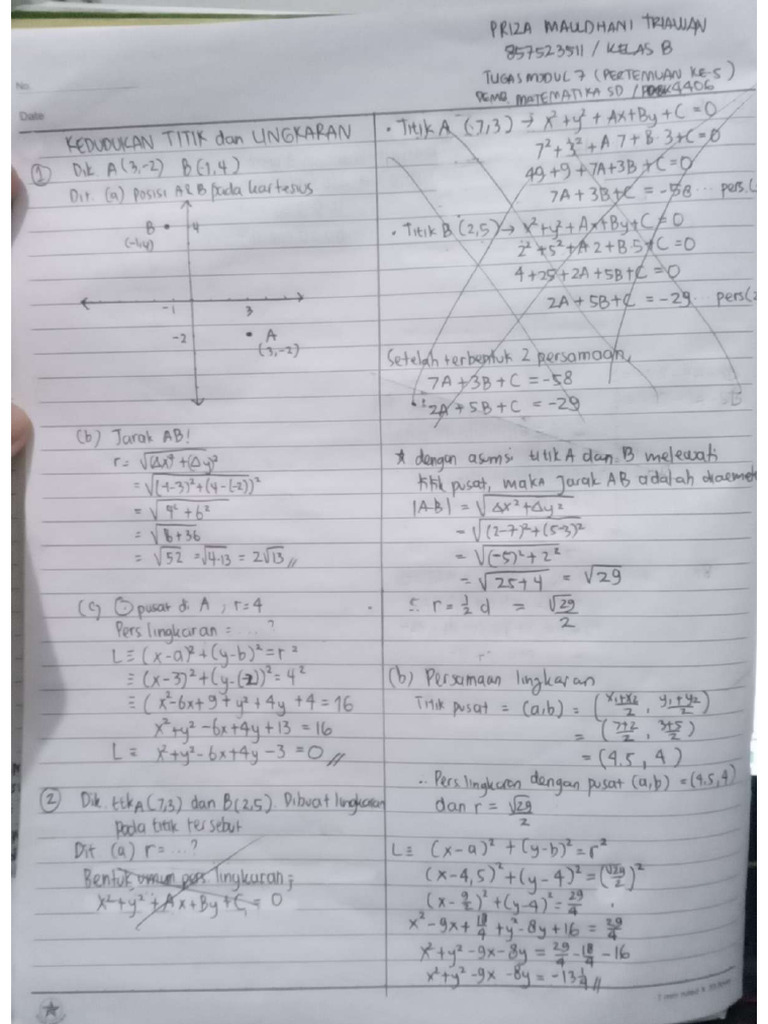 PRIZA MAULDHANI TRIAWAN
857523511 / KELAS B
TUGAS MODUL 7 (PERTEMUAN KE-5)
PEMB. MATEMATIKA SD / PDGK4406
No.
Date
KEDUDUKAN TITIK dan LINGKARAN
① Dik A(3,-2) B(-1,4)
Dit. (a) posisi A&B pada kartesius
B • 4
(-1,4)
-1 3
-2 • A
(3,-2)
(b) Jarak AB!
r = √(Δx)²+(Δy)²
= √(-1-3)²+(4-(-2))²
= √4²+6²
= √16+36
= √52 = √4·13 = 2√13 //
(c) ⊙ pusat di A, r=4
Pers lingkaran = ...?
L ≡ (x-a)²+(y-b)²=r²
≡ (x-3)²+(y-(-2))²=4²
≡ (x²-6x+9+y²+4y+4=16
x²+y²-6x+4y+13=16
L ≡ x²+y²-6x+4y-3=0 //
② Dik. ttk A(7,3) dan B(2,5). Dibuat lingkaran
pada titik tersebut
Dit (a) r=...?
Bentuk umum pers lingkaran;
x²+y²+Ax+By+C=0
• Titik A (7,3) → x²+y²+Ax+By+C=0
7²+3²+A·7+B·3+C=0
49+9+7A+3B+C=0
7A+3B+C=-58 ... pers.(
• Titik B (2,5) → x²+y²+Ax+By+C=0
2²+5²+A·2+B·5+C=0
4+25+2A+5B+C=0
2A+5B+C=-29 ... pers(2
Setelah terbentuk 2 persamaan,
7A+3B+C=-58
2A+5B+C=-29
* dengan asumsi titik A dan B melewati
titik pusat, maka jarak AB adalah diamet
|AB| = √Δx²+Δy²
= √(2-7)²+(5-3)²
= √(-5)²+2²
= √25+4 = √29
∴ r=½d = √29/2
(b) Persamaan lingkaran
Titik pusat = (a,b) = (x₁+x₂/2, y₁+y₂/2)
= (7+2/2, 3+5/2)
= (4.5, 4)
∴ Pers lingkaran dengan pusat (a,b)=(4.5,4)
dan r=√29/2
L ≡ (x-a)²+(y-b)²=r²
(x-4,5)²+(y-4)²=(√29/2)²
(x-9/2)²+(y-4)²=29/4
x²-9x+18/4+y²-8y+16=29/4
x²+y²-9x-8y=29/4-18/4-16
x²+y²-9x-8y=-13¼ //